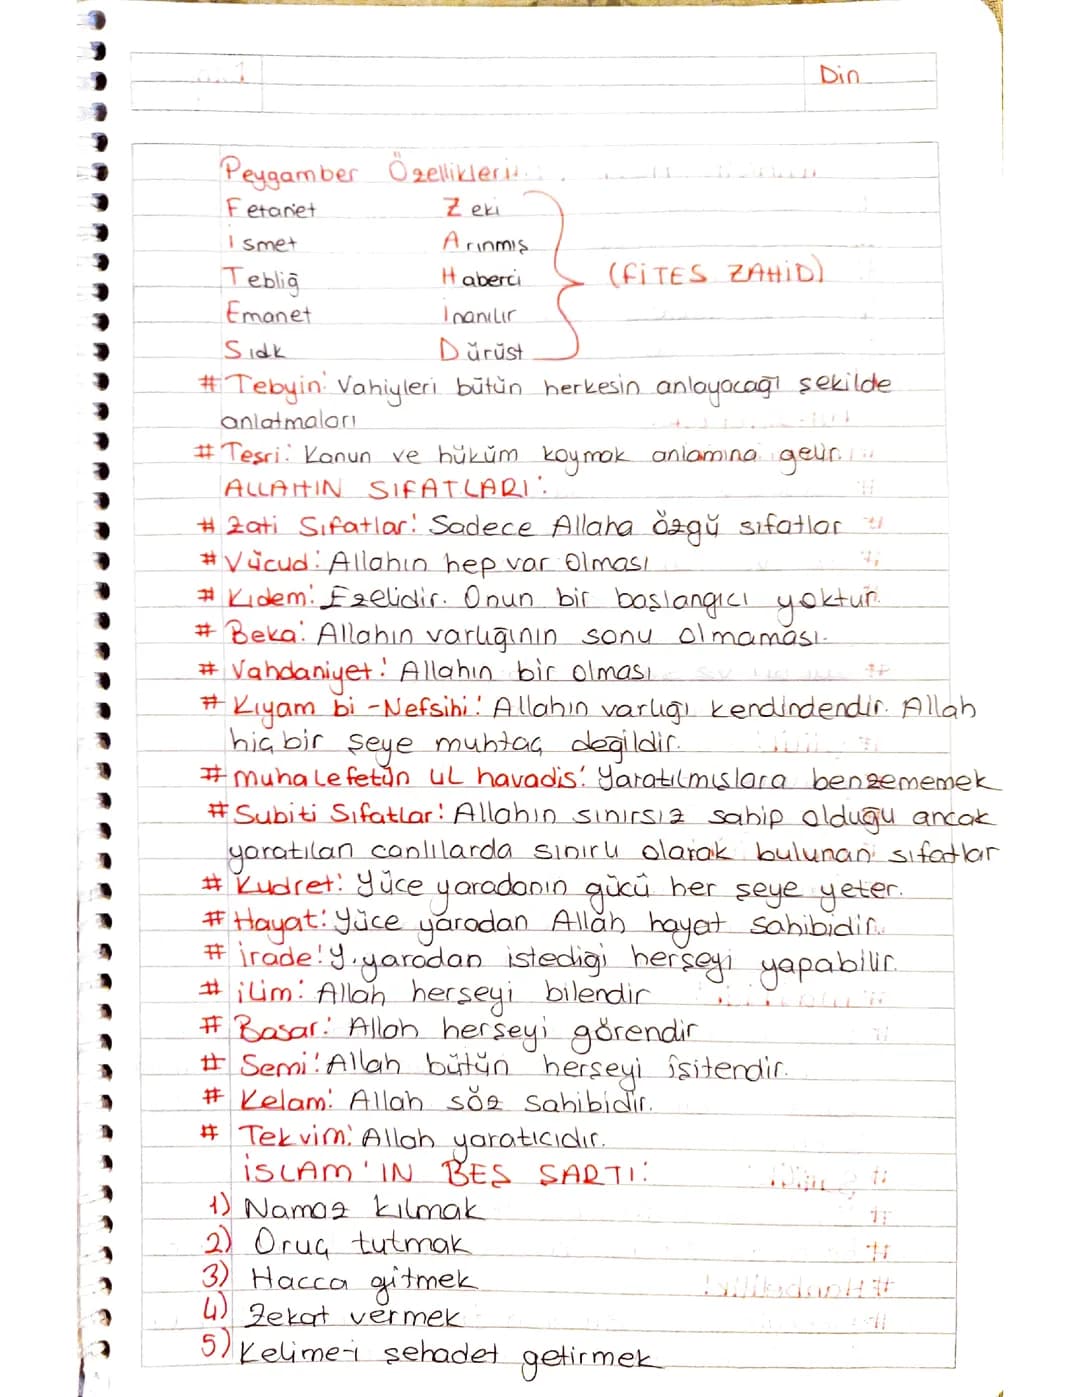 Din
Peygamber Özellikleri:
Fetanet Zeki
İsmet Arınmış
Tebliğ Haberci
Emanet İnanılır
Sıdk Dürüst
(FİTES ZAHİD)
# Tebyin: Vahiyleri bütün herkesin anlayacağı şekilde
anlatmaları
# Teşri: Kanun ve hüküm koymak anlamına gelir.
ALLAHIN SIFATLARI:
# Zati Sıfatlar: Sadece Allaha özgü sıfatlar
# Vücud: Allahın hep var olması
# Kıdem: Ezelidir. Onun bir başlangıcı yoktur.
# Beka: Allahın varlığının sonu olmaması.
# Vahdaniyet: Allahın bir olması
# Kıyam bi-Nefsihi: Allahın varlığı kendindendir. Allah
hiç bir şeye muhtaç değildir.
# muhalefetün ul havadis: Yaratılmışlara benzememek
# Subiti Sıfatlar: Allahın sınırsız sahip olduğu ancak
yaratılan canlılarda sınırlı olarak bulunan sıfatlar
# Kudret: Yüce yaradanın gücü her şeye yeter.
# Hayat: Yüce yaradan Allah hayat sahibidir.
# İrade: Y.yaradan istediği herşeyi yapabilir.
# ilim: Allah herşeyi bilendir
# Basar: Allah herşeyi görendir
# Semi: Allah bütün herşeyi işitendir.
# Kelam: Allah söz sahibidir.
# Tekvim: Allah yaratıcıdır.
İSLAM'IN BEŞ ŞARTI:
1) Namaz kılmak
2) Oruç tutmak
3) Hacca gitmek
4) Zekat vermek
5) Kelime-i şehadet getirmek